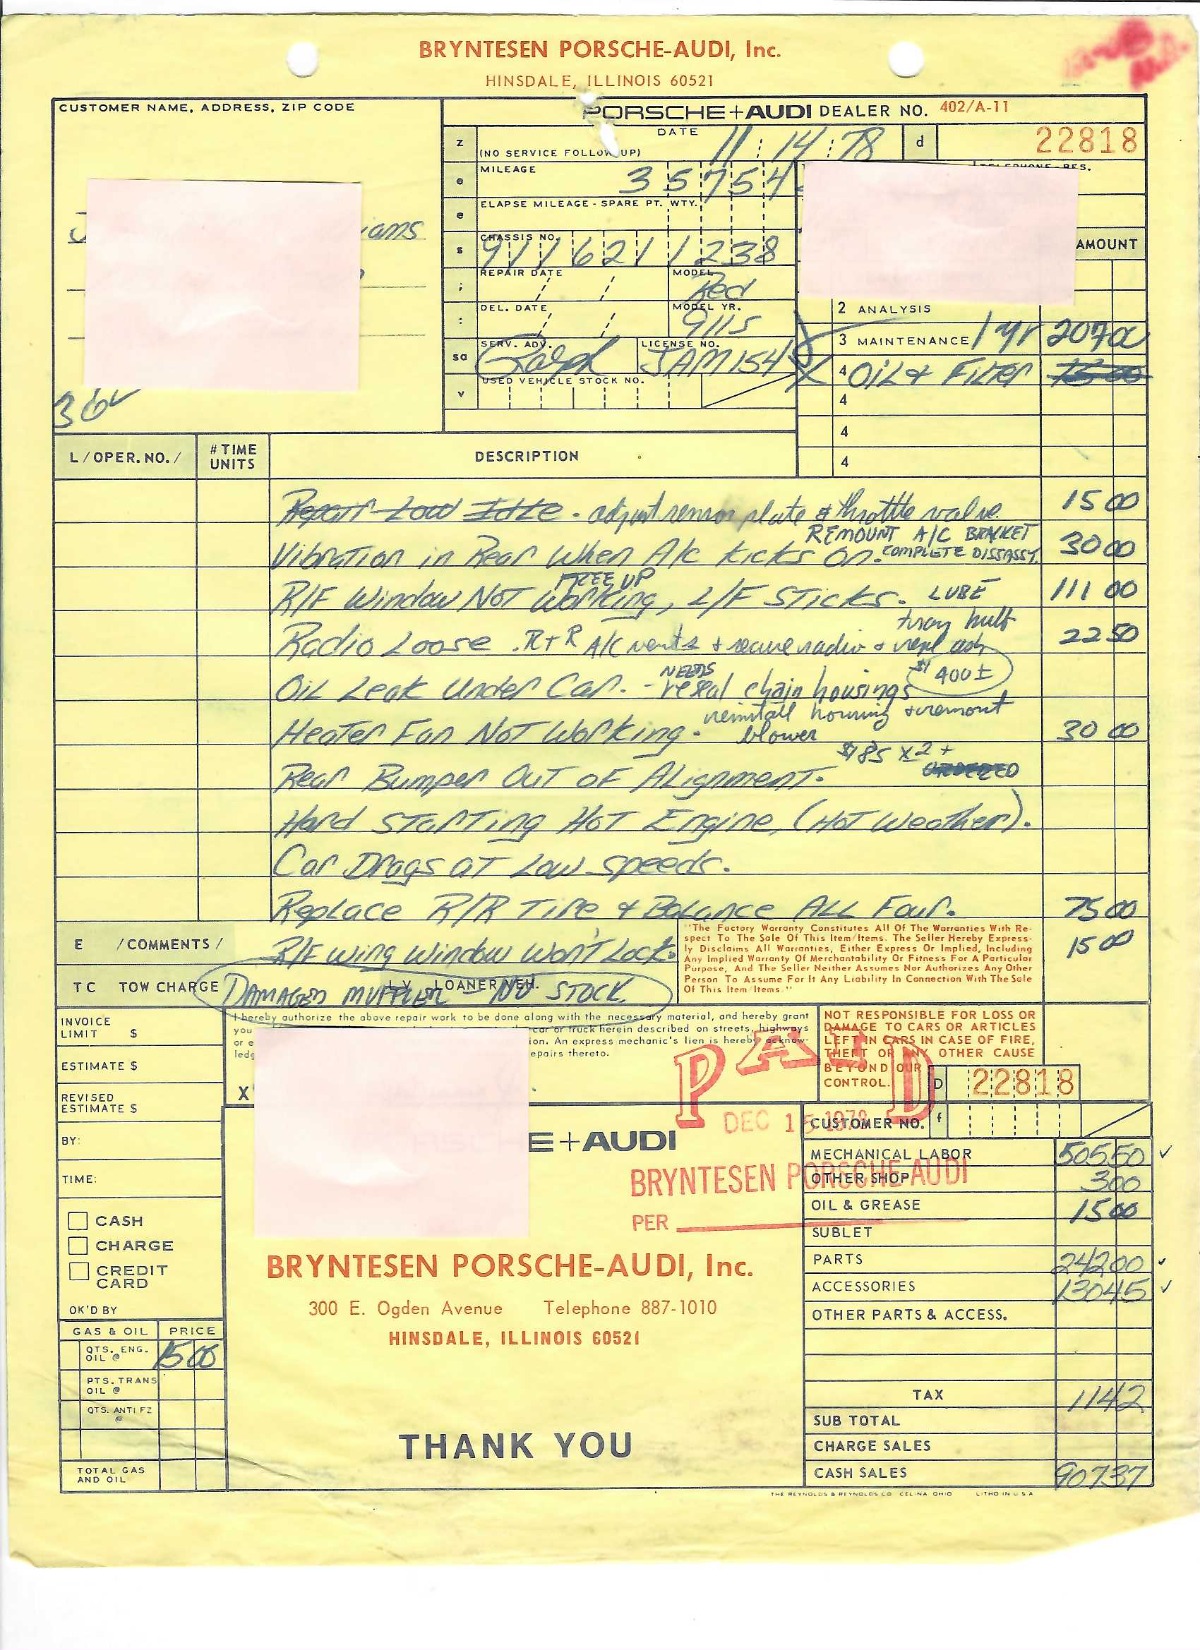 BRYNTESEN PORSCHE-AUDI, Inc.
HINSDALE, ILLINOIS 60521
CUSTOMER NAME, ADDRESS, ZIP CODE
PORSCHE+AUDI DEALER NO. 402/A-11
DATE
(NO SERVICE FOLLOW UP) 11:14:78 d 22818
MILEAGE 35754
TELEPHONE-RES.
ELAPSE MILEAGE - SPARE PT. WTY.
ians
CHASSIS NO. 9116211238
AMOUNT
REPAIR DATE / / MODEL Red
DEL. DATE / / MODEL YR. 911S
2 ANALYSIS
3 MAINTENANCE 1 yr 207 00
SERV. ADV. Ralph LICENSE NO. JAM154
4 OIL & FILTER 15 00
USED VEHICLE STOCK NO.
4
4
4
L/OPER. NO./ # TIME UNITS DESCRIPTION
Repair Low Idle - adjust sensor plate & throttle valve. 15 00
REMOUNT A/C BRACKET
Vibration in Rear When A/C Kicks On. COMPLETE DISSASSY. 30 00
FREE UP
R/F Window Not Working, L/F Sticks. LUBE 111 00
tray bulb
Radio Loose. R+R A/C vents & secure radio & repl ash 22 50
NEEDS
Oil Leak Under Car. - reseal chain housings $400±
reinstall housing & remont
Heater Fan Not Working. blower 30 00
$185 x 2 +
Rear Bumper Out of Alignment. ORDERED
Hard Starting Hot Engine (Hot Weather).
Car Drags at Low Speeds.
Replace R/R Tire & Balance All Four. 75 00
E /COMMENTS/ R/F Wing Window Won't Lock. 15 00
"The Factory Warranty Constitutes All Of The Warranties With Re-
spect To The Sale Of This Item/Items. The Seller Hereby Express-
ly Disclaims All Warranties, Either Express Or Implied, Including
Any Implied Warranty Of Merchantability Or Fitness For A Particular
Purpose, And The Seller Neither Assumes Nor Authorizes Any Other
Person To Assume For It Any Liability In Connection With The Sale
Of This Item/Items."
TC TOW CHARGE LOANER VEH.
DAMAGED MUFFLER - NO STOCK.
I hereby authorize the above repair work to be done along with the necessary material, and hereby grant
you
car or truck herein described on streets, highways
or e
ion. An express mechanic's lien is hereby acknow-
ledg
epairs thereto.
X
NOT RESPONSIBLE FOR LOSS OR
DAMAGE TO CARS OR ARTICLES
LEFT IN CARS IN CASE OF FIRE,
THEFT OR ANY OTHER CAUSE
BEYOND OUR
CONTROL.
D 22818
INVOICE LIMIT $
ESTIMATE $
REVISED ESTIMATE $
BY:
TIME:
CASH
CHARGE
CREDIT CARD
OK'D BY
GAS & OIL PRICE
QTS. ENG. OIL @ 15 00
PTS. TRANS OIL @
QTS. ANTI FZ @
TOTAL GAS AND OIL
PAID
DEC 15 1978
BRYNTESEN PORSCHE-AUDI
PER
E+AUDI
BRYNTESEN PORSCHE-AUDI, Inc.
300 E. Ogden Avenue Telephone 887-1010
HINSDALE, ILLINOIS 60521
THANK YOU
CUSTOMER NO. f
MECHANICAL LABOR 505 50
OTHER SHOP 3 00
OIL & GREASE 15 00
SUBLET
PARTS 242 00
ACCESSORIES 130 45
OTHER PARTS & ACCESS.
TAX 11 42
SUB TOTAL
CHARGE SALES
CASH SALES 907 37
THE REYNOLDS & REYNOLDS CO. CELINA OHIO LITHO IN U.S.A.